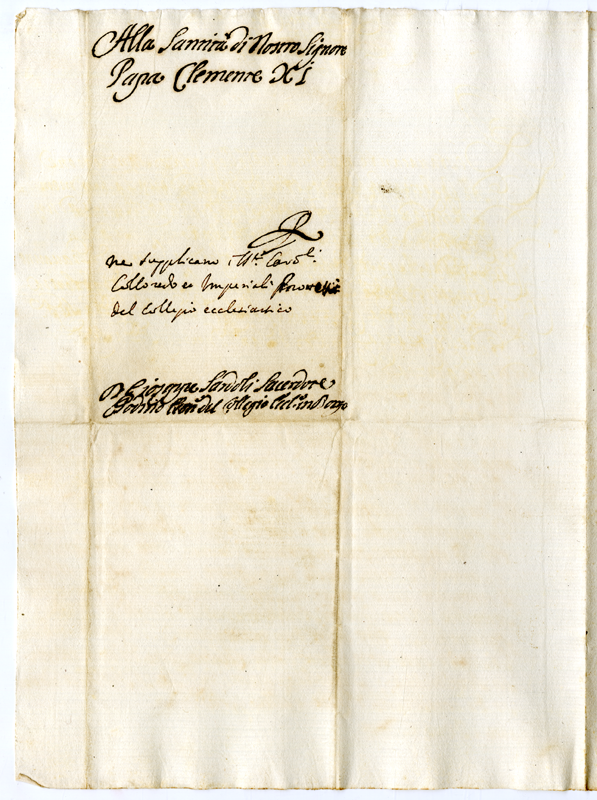 Alla Santità di Nostro Signore
Papa Clemente XI
R
ne supplicano Card.li
Colloredo et Imperiali
del Collegio ecclesiastico
D. Gioseppe Sardoli Sacerdote
del Collegio Eccl.o in Borgo